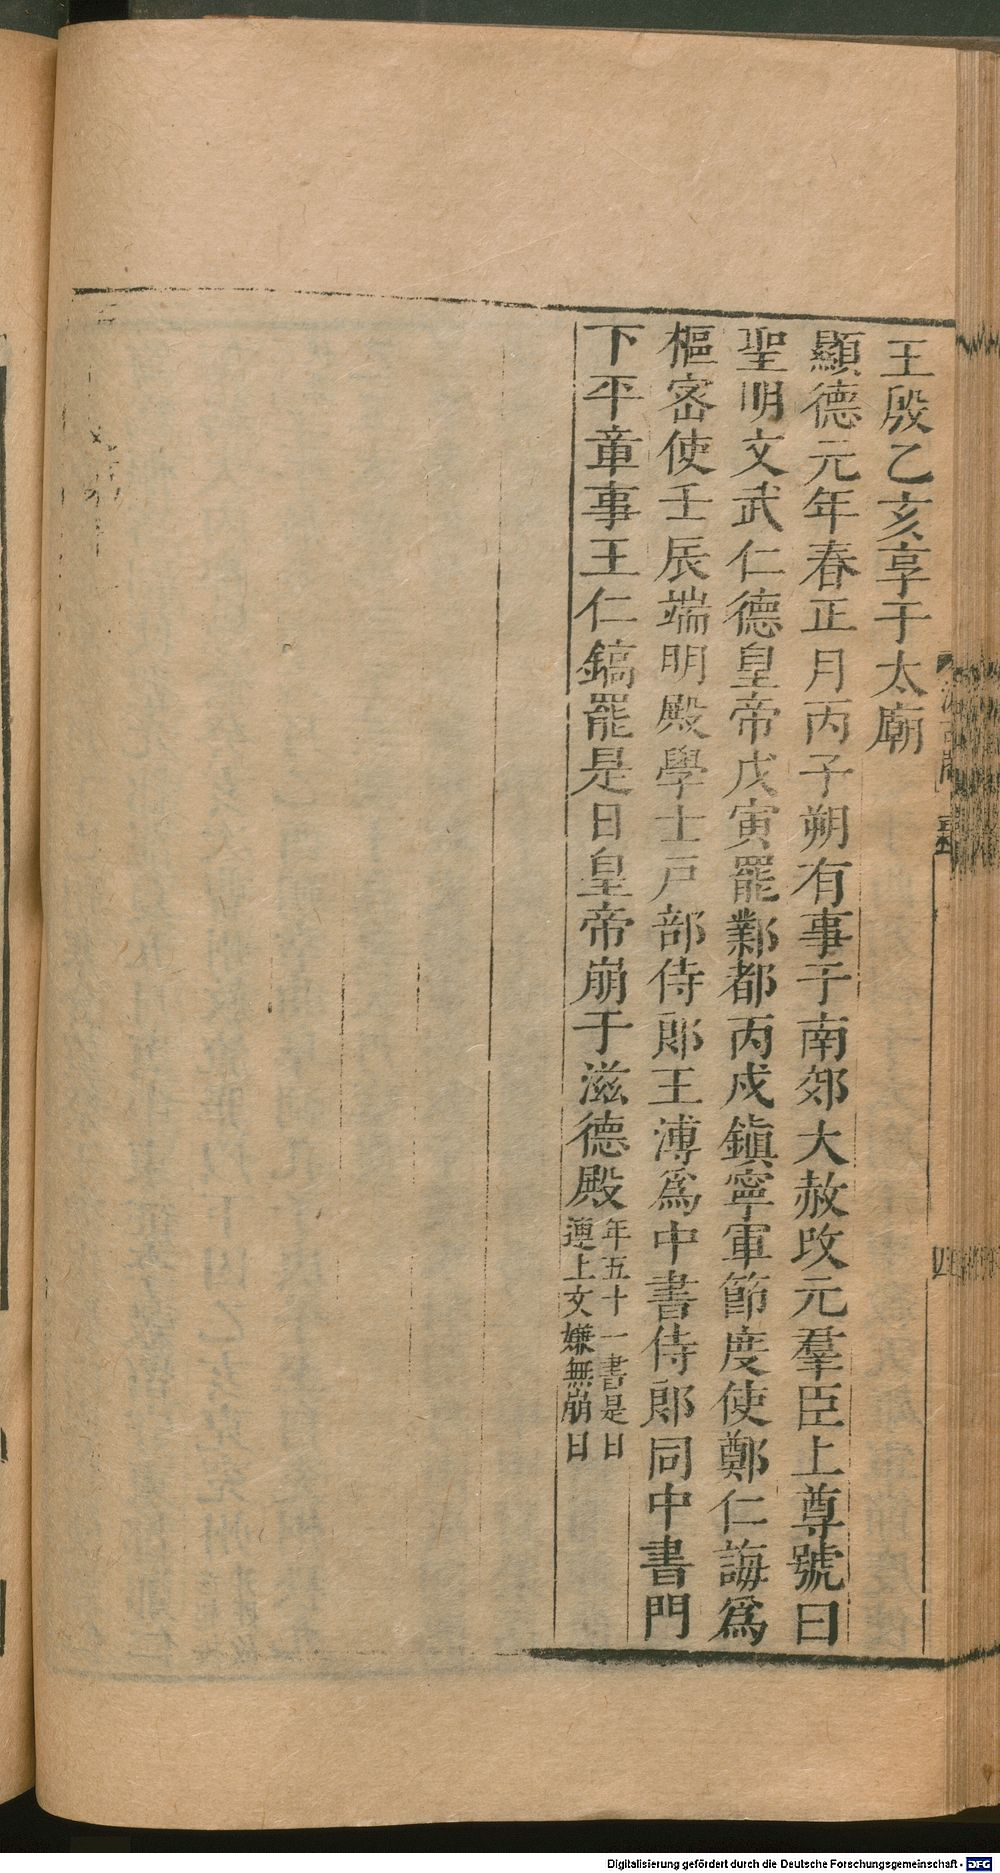 王殷乙亥享于太廟
顯德元年春正月丙子朔有事于南郊大赦改元羣臣上尊號曰
聖明文武仁德皇帝戊寅罷鄴都丙戌鎮寧軍節度使鄭仁誨爲
樞密使壬辰端明殿學士戸部侍郎王溥爲中書侍郎同中書門
下平章事王仁鎬罷是日皇帝崩于滋德殿
年五十一書是日
連上文嫌無崩日
汲古閣
四
Digitalisierung gefördert durch die Deutsche Forschungsgemeinschaft - DFG